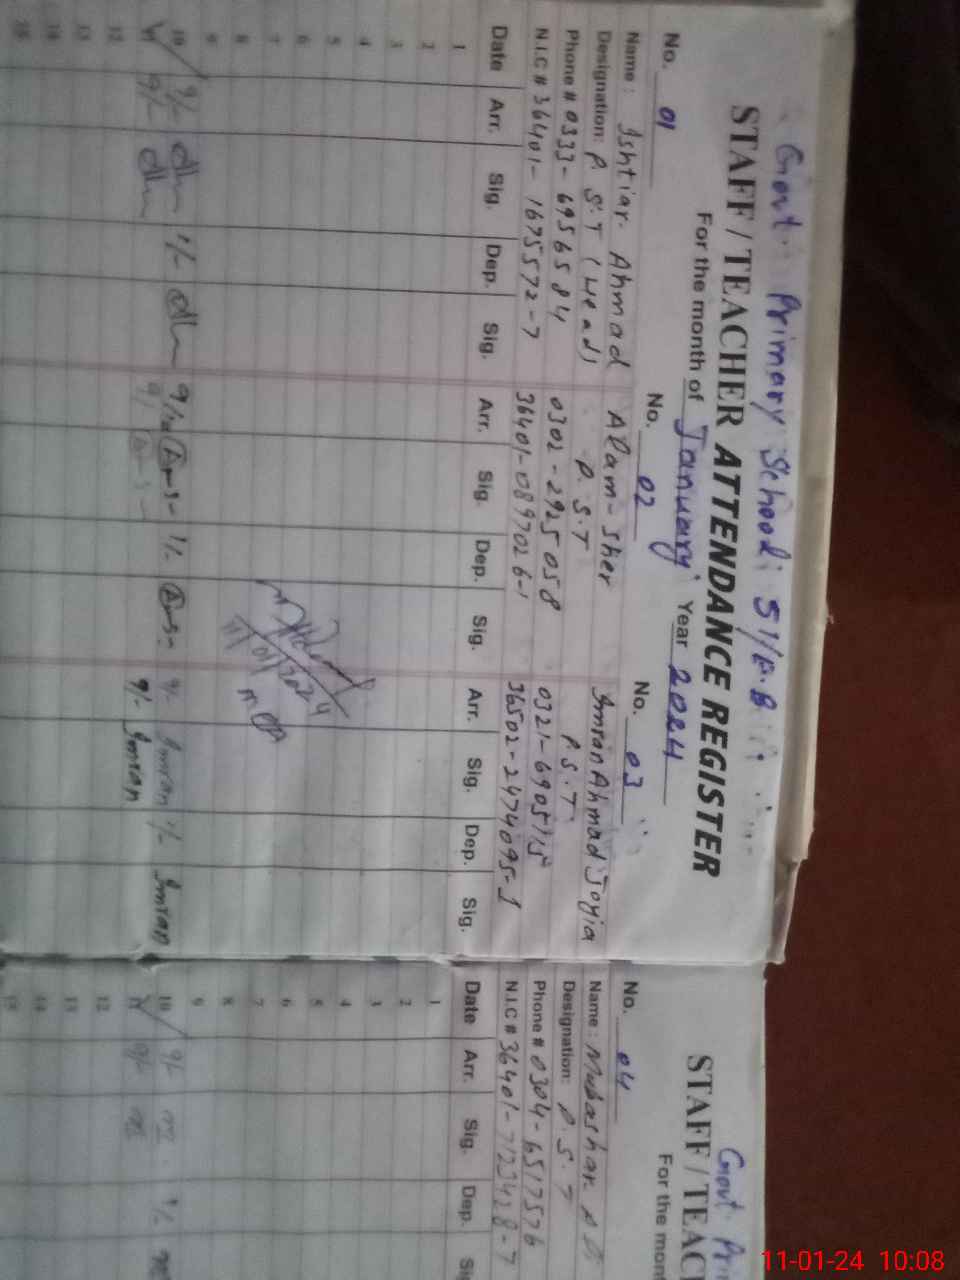 Govt. Primary School; 51/E.B
STAFF / TEACHER ATTENDANCE REGISTER
For the month of January Year 2024
No. 01 No. 02 No. 03
Name: Ishtiar Ahmad Alam-Sher Imran Ahmad Joyia
Designation: P.S.T (Head) P.S.T P.S.T
Phone # 0333-6956584 0302-2925058 0321-6905715
N.I.C # 36401-1675572-7 36401-0897026-1 36502-2474095-1
Date Arr. Sig. Dep. Sig. Arr. Sig. Dep. Sig. Arr. Sig. Dep. Sig.
1
2
3
4
5
6
7
8
9
10 9/- 1/- 9/- 1/- 9/- Imran 1/- Imran
11 9/- 9/- 9/- Imran
12
13
14
15
11/01/2024
Govt. Pri
STAFF / TEAC
For the mon
No. 04
Name: Mubashar
Designation: P.S.T
Phone # 0304-6517576
N.I.C # 36401-7123428-7
Date Arr. Sig. Dep. Si
1
2
3
4
5
6
7
8
9
10 9/- 1/-
11 9/-
12
13
14
15
11-01-24 10:08